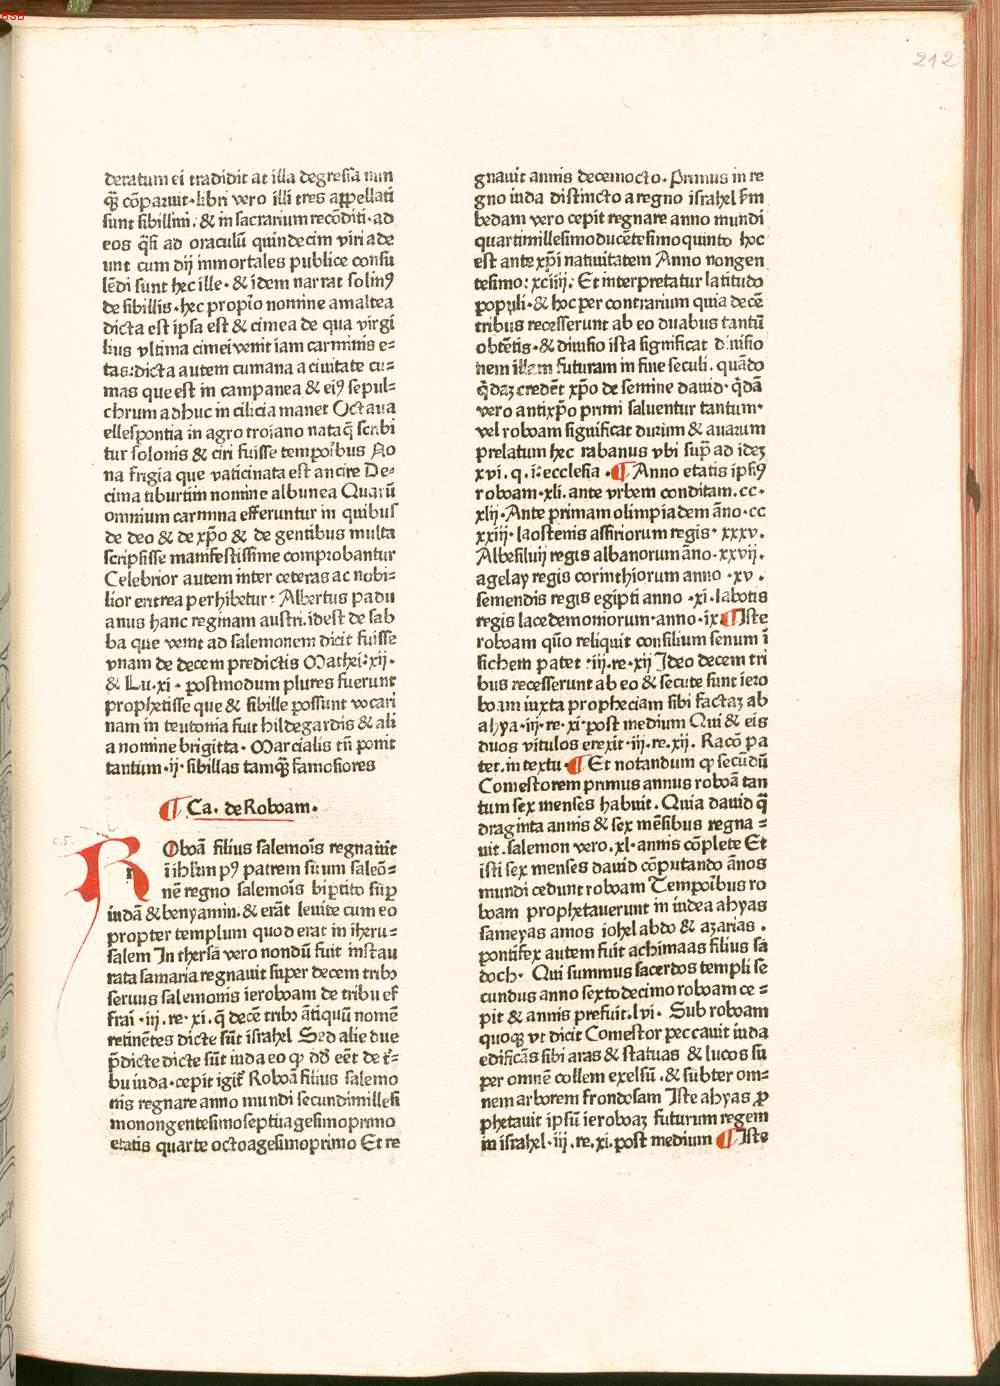 212
deratum ei tradidit at illa degressa nun
q̃ȝ cõparuit·libri vero illi tres appellati
sunt sibillini. & in sacrarium recõditi·ad
eos q̃si ad oraculũ quindecim viri ade
unt cum dij immortales publice consu
lẽdi sunt hec ille·& idem narrat solinꝰ
de sibillis·hec proprĩo nomine amaltea
dicta est ipsa est & cimea de qua virgi
lius vltima cimei venit iam carminis e=
tas:dicta autem cumana a ciuitate cu=
mas que est in campanea & eiꝰ sepul=
chrum adhuc in cilicia manet Octaua
ellespontia in agro troiano nata q̃ scribi
tur solonis & ciri fuisse temporĩbus No
na frigia que vaticinata est ancire De=
cima tiburtini nomine albunea Quarũ
omnium carmina efferuntur in quibus
de deo & de xp̃o & de gentibus multa
scripsisse manifestissime comprobantur
Celebrior autem inter ceteras ac nobi=
lior eritrea perhibetur: Albertus padu
anus hanc reginam austri.idest de sab
ba que venit ad salemonem dicit fuisse
vnam de decem predictis Mathei:xij·
& Lu.xi· postmodum plures fuerunt
prophetisse que & sibille possunt vocari
nam in teutonia fuit hildegardis & ali
a nomine brigitta· Marcialis tñ ponit
tantum·ij·sibillas tamq̃ȝ famosiores
¶ Ca. de Roboam.
ROboã filius salemoĩs regnauit
ĩ ihrl̃m pꝰ patrem suum saleõ=
nẽ regno salemoĩs biptito sup̱
iudã & benyamin.& erãt leuite cum eo
propter templum quod erat in iheru=
salem In thersa vero nondũ fuit instau
rata samaria regnauit super decem tribꝰ
seruus salemonis ieroboam de tribu ef
frai·iij.re·xi.q̃ decẽ tribꝰ ãtiquũ nomẽ
retinẽtes dicte sũt israhel Sed alie due
p̃dicte dicte sũt iuda eo ꝙ dd̃ eẽt de t̃=
bu iuda·cepit igit̃ Roboã filius salemo
nis regnare anno mundi secundimillesi
monongentesimoseptuagesimoprimo
etatis quarte octoagesimoprimo Et re
gnauit annis decemocto. Primus in re
gno iuda distincto a regno israhel s̃m
bedam vero cepit regnare anno mundi
quartimillesimoducẽtesimoquinto hoc
est ante xp̃i natiuitatem Anno nongen
tesimo: xciiij. Et interpretatur latitudo
populi·& hoc per contrarium quia decẽ
tribus recesserunt ab eo duabus tantũ
obtẽtis·& diuisio ista significat diuisio
nem illam futuram in fine seculi. quãdo
q̃daȝ credẽt xp̃o de semine dauid·q̃dã
vero antixp̃o primi saluentur tantum·
vel roboam significat durum & auarum
prelatum hec rabanus vbi sup̃ ad ideȝ
xvi. q. i: ecclesia·¶ Anno etatis ipsiꝰ
roboam·xli. ante vrbem conditam.cc·
xlij·Ante primam olimpiadem ãno·cc
xxiij·laostenis assiriorum regis·xxxv.
Albesiluij regis albanorum ãno·xxvij.
agelay regis corinthiorum anno·xv.
semendis regis egipti anno·xi·labotis
regis lacedemoniorum·anno·ix.¶Iste
roboam qũo reliquit consilium senum ĩ
sichem patet :iij·re·xij Ideo decem tri
bus recesserunt ab eo & secute sunt iero
boam iuxta propheciam sibi factaȝ ab
ahya·iij·re·xi·post medium Qui & eis
duos vitulos erexit·iij.re.xij. Racõ pa
tet.in textu·¶ Et notandum ꝙ secũdũ
Comestorem primus annus roboã tan
tum sex menses habuit. Quia dauid q̃
draginta annis & sex mẽsibus regna=
uit.salemon vero.xl·annis cõplete Et
isti sex menses dauid cõputando ãnos
mundi cedunt roboam Temporĩbus ro
boam prophetauerunt in iudea ahyas
sameyas amos iohel abdo & azarias.
pontifex autem fuit achimaas filius sa
doch· Qui summus sacerdos templi se
cundus anno sextodecimo roboam ce=
pit & annis prefuit.lvi· Sub roboam
quoqȝ vt dicit Comestor peccauit iuda
edificãs sibi aras & statuas & lucos su
per omnẽ collem exelsũ.& subter om=
nem arborem frondosam Iste ahyas ꝓ
phetauit ipsũ ieroboaȝ futurum regem
in israhel·iij.re.xi.post medium ¶ Iste